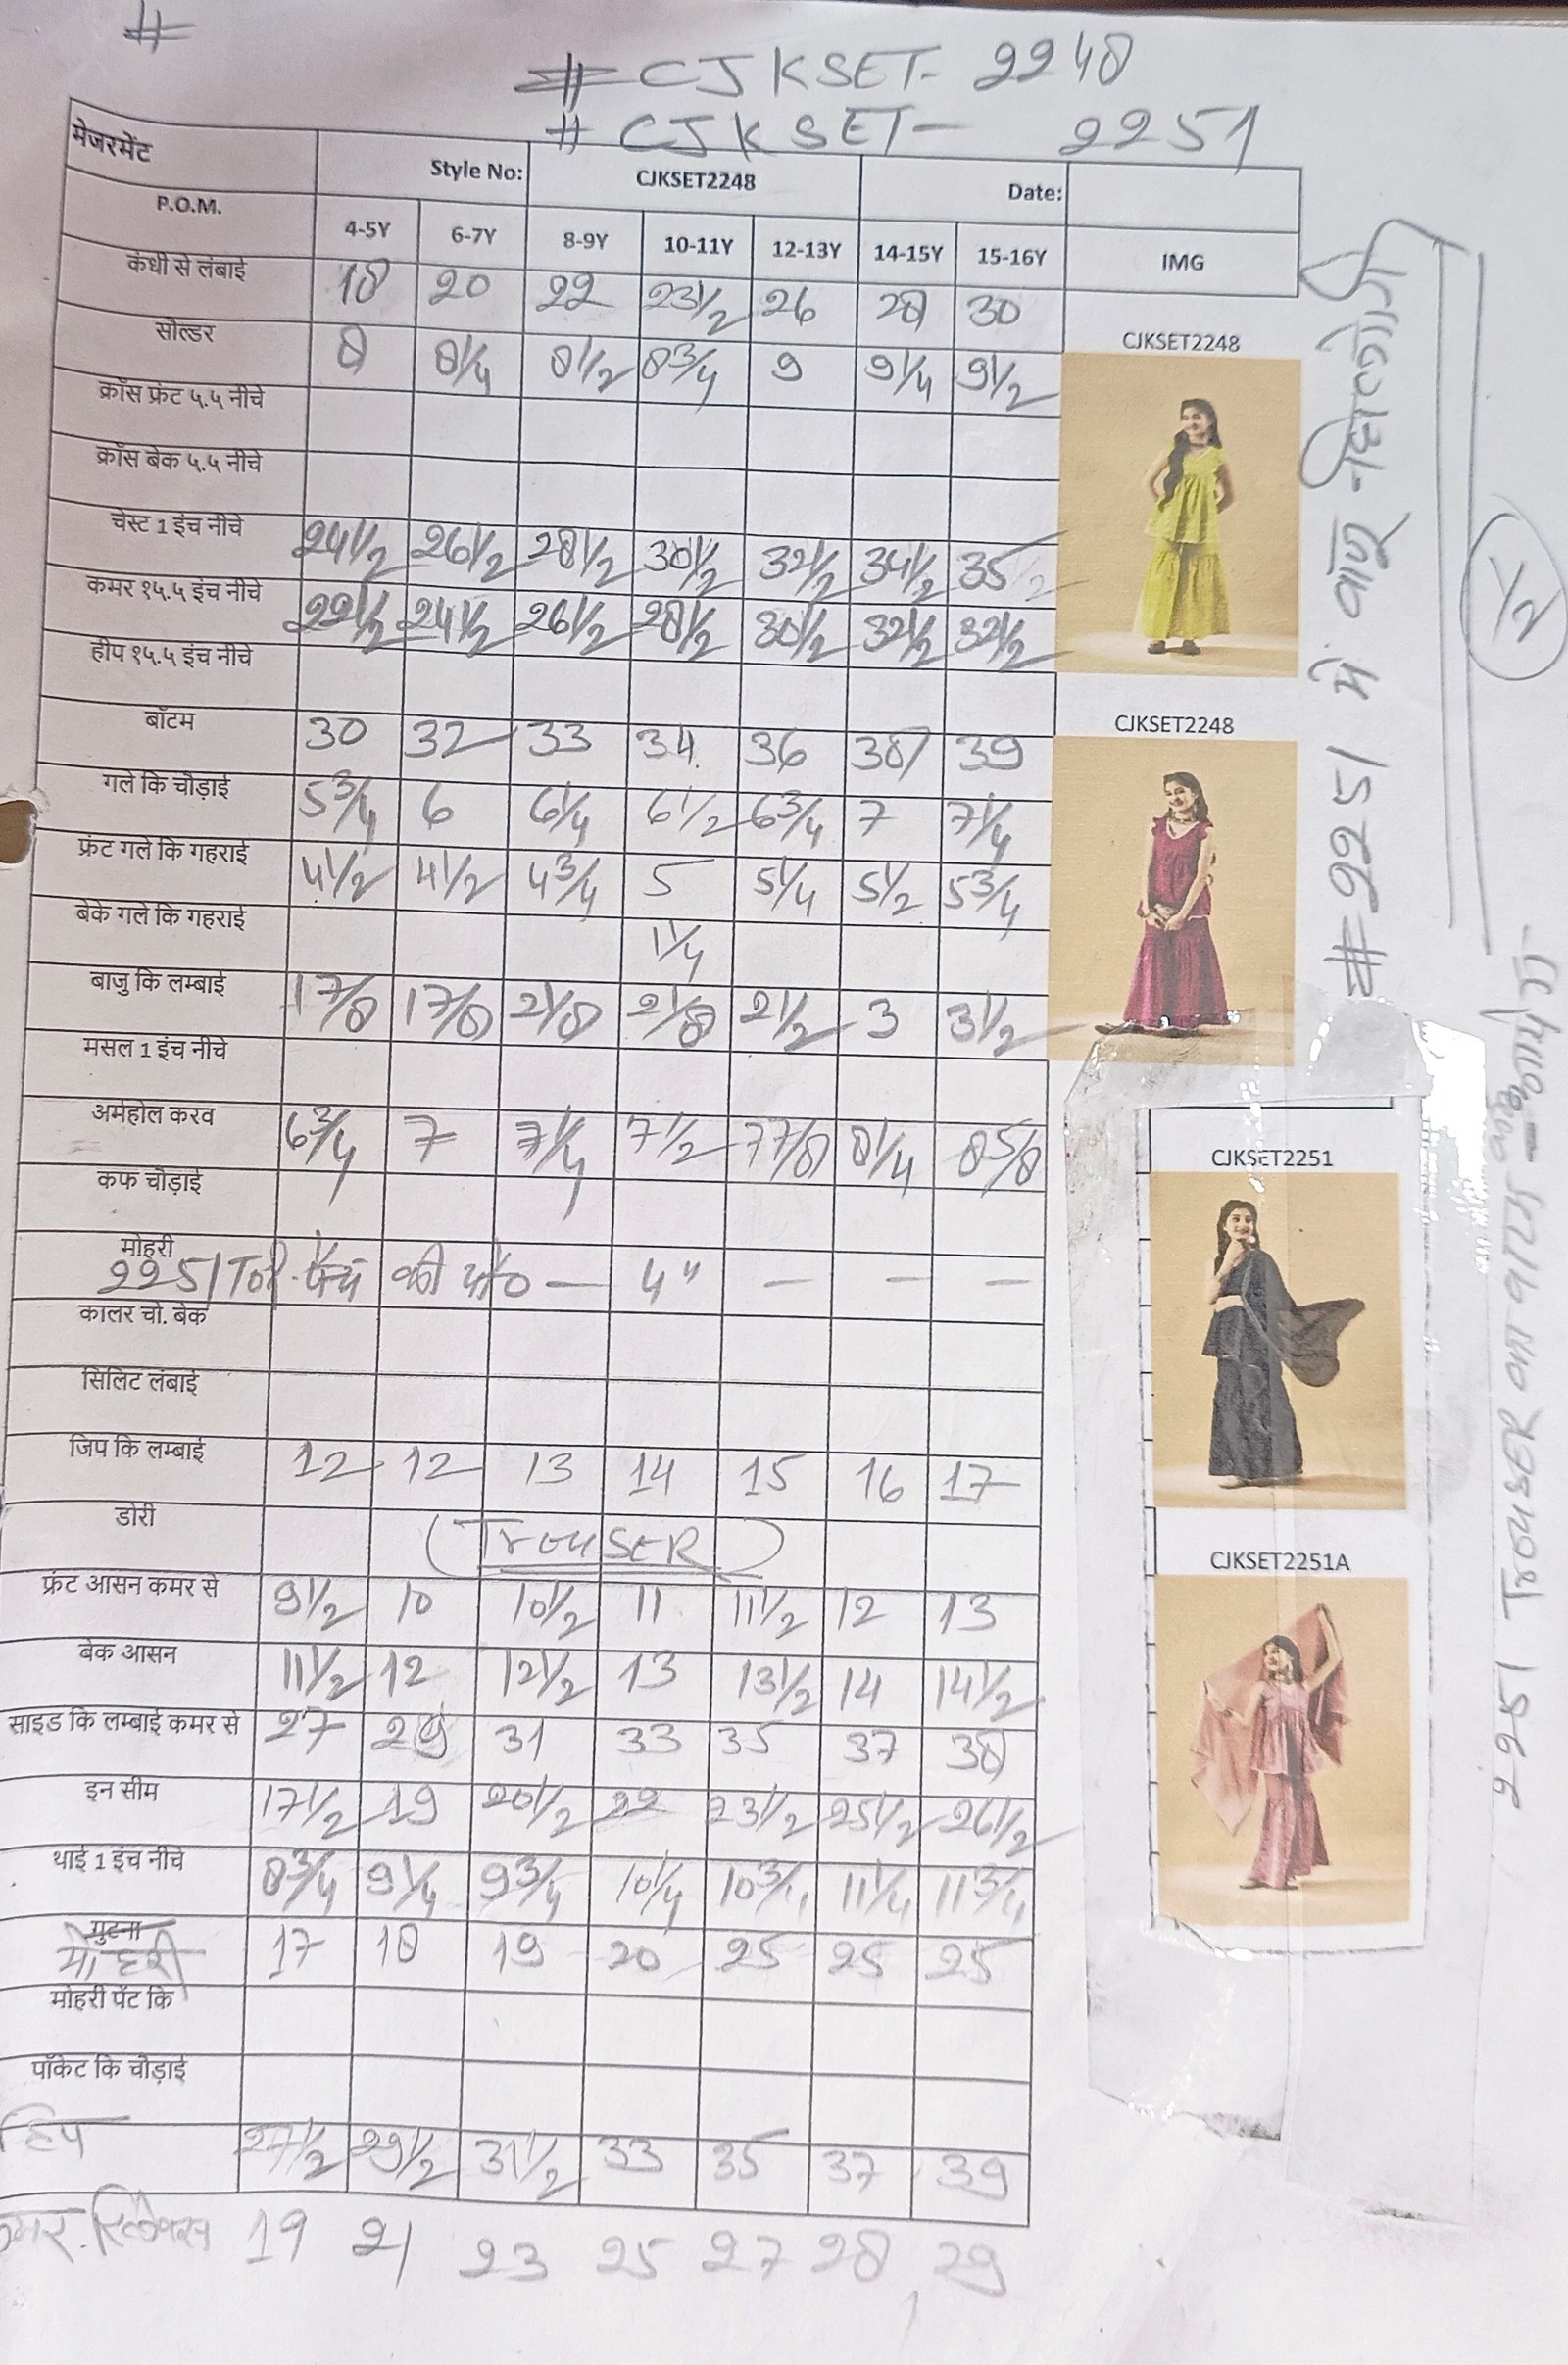 #
# CJKSET- 2248
# CJKSET- 2251
मेजरमेंट Style No: CJKSET2248 Date:
P.O.M. 4-5Y 6-7Y 8-9Y 10-11Y 12-13Y 14-15Y 15-16Y IMG
कंधी से लंबाई 18 20 22 23 1/2 26 28 30
सोल्डर 8 8 1/4 8 1/2 8 3/4 9 9 1/4 9 1/2
क्रॉस फ्रंट ५.५ नीचे
क्रॉस बेक ५.५ नीचे
चेस्ट 1 इंच नीचे 24 1/2 26 1/2 28 1/2 30 1/2 32 1/2 34 1/2 35 1/2
कमर १५.५ इंच नीचे 22 1/2 24 1/2 26 1/2 28 1/2 30 1/2 32 1/2 32 1/2
हीप १५.५ इंच नीचे
बॉटम 30 32 33 34 36 38 39
गले कि चौड़ाई 5 3/4 6 6 1/4 6 1/2 6 3/4 7 7 1/4
फ्रंट गले कि गहराई 4 1/2 4 1/2 4 3/4 5 5 1/4 5 1/2 5 3/4
बेके गले कि गहराई 1 1/4
बाजु कि लम्बाई 1 7/8 1 7/8 2 1/8 2 1/8 2 1/2 3 3 1/2
मसल 1 इंच नीचे
अर्महोल करव 6 3/4 7 7 1/4 7 1/2 7 7/8 8 1/4 8 5/8
कफ चौड़ाई
मोहरी
2251 TOP की चौ० — 4" — — —
कालर चो. बेक
सिलिट लंबाई
जिप कि लम्बाई 12 12 13 14 15 16 17
डोरी (TrouSER)
फ्रंट आसन कमर से 9 1/2 10 10 1/2 11 11 1/2 12 13
बेक आसन 11 1/2 12 12 1/2 13 13 1/2 14 14 1/2
साइड कि लम्बाई कमर से 27 29 31 33 35 37 38
इन सीम 17 1/2 19 20 1/2 22 23 1/2 25 1/2 26 1/2
थाई 1 इंच नीचे 8 3/4 9 1/4 9 3/4 10 1/4 10 3/4 11 1/4 11 3/4
घुटना
मोहरी 17 18 19 20 25 25 25
मोहरी पेंट कि
पॉकेट कि चौड़ाई
हिप 27 1/2 29 1/2 31 1/2 33 35 37 39
कमर रिलेक्स 19 21 23 25 27 28 29
CJKSET2248
CJKSET2248
CJKSET2251
CJKSET2251A
#2251 में बाजू नहि लगेगी
1/2
2251 TrouSER का